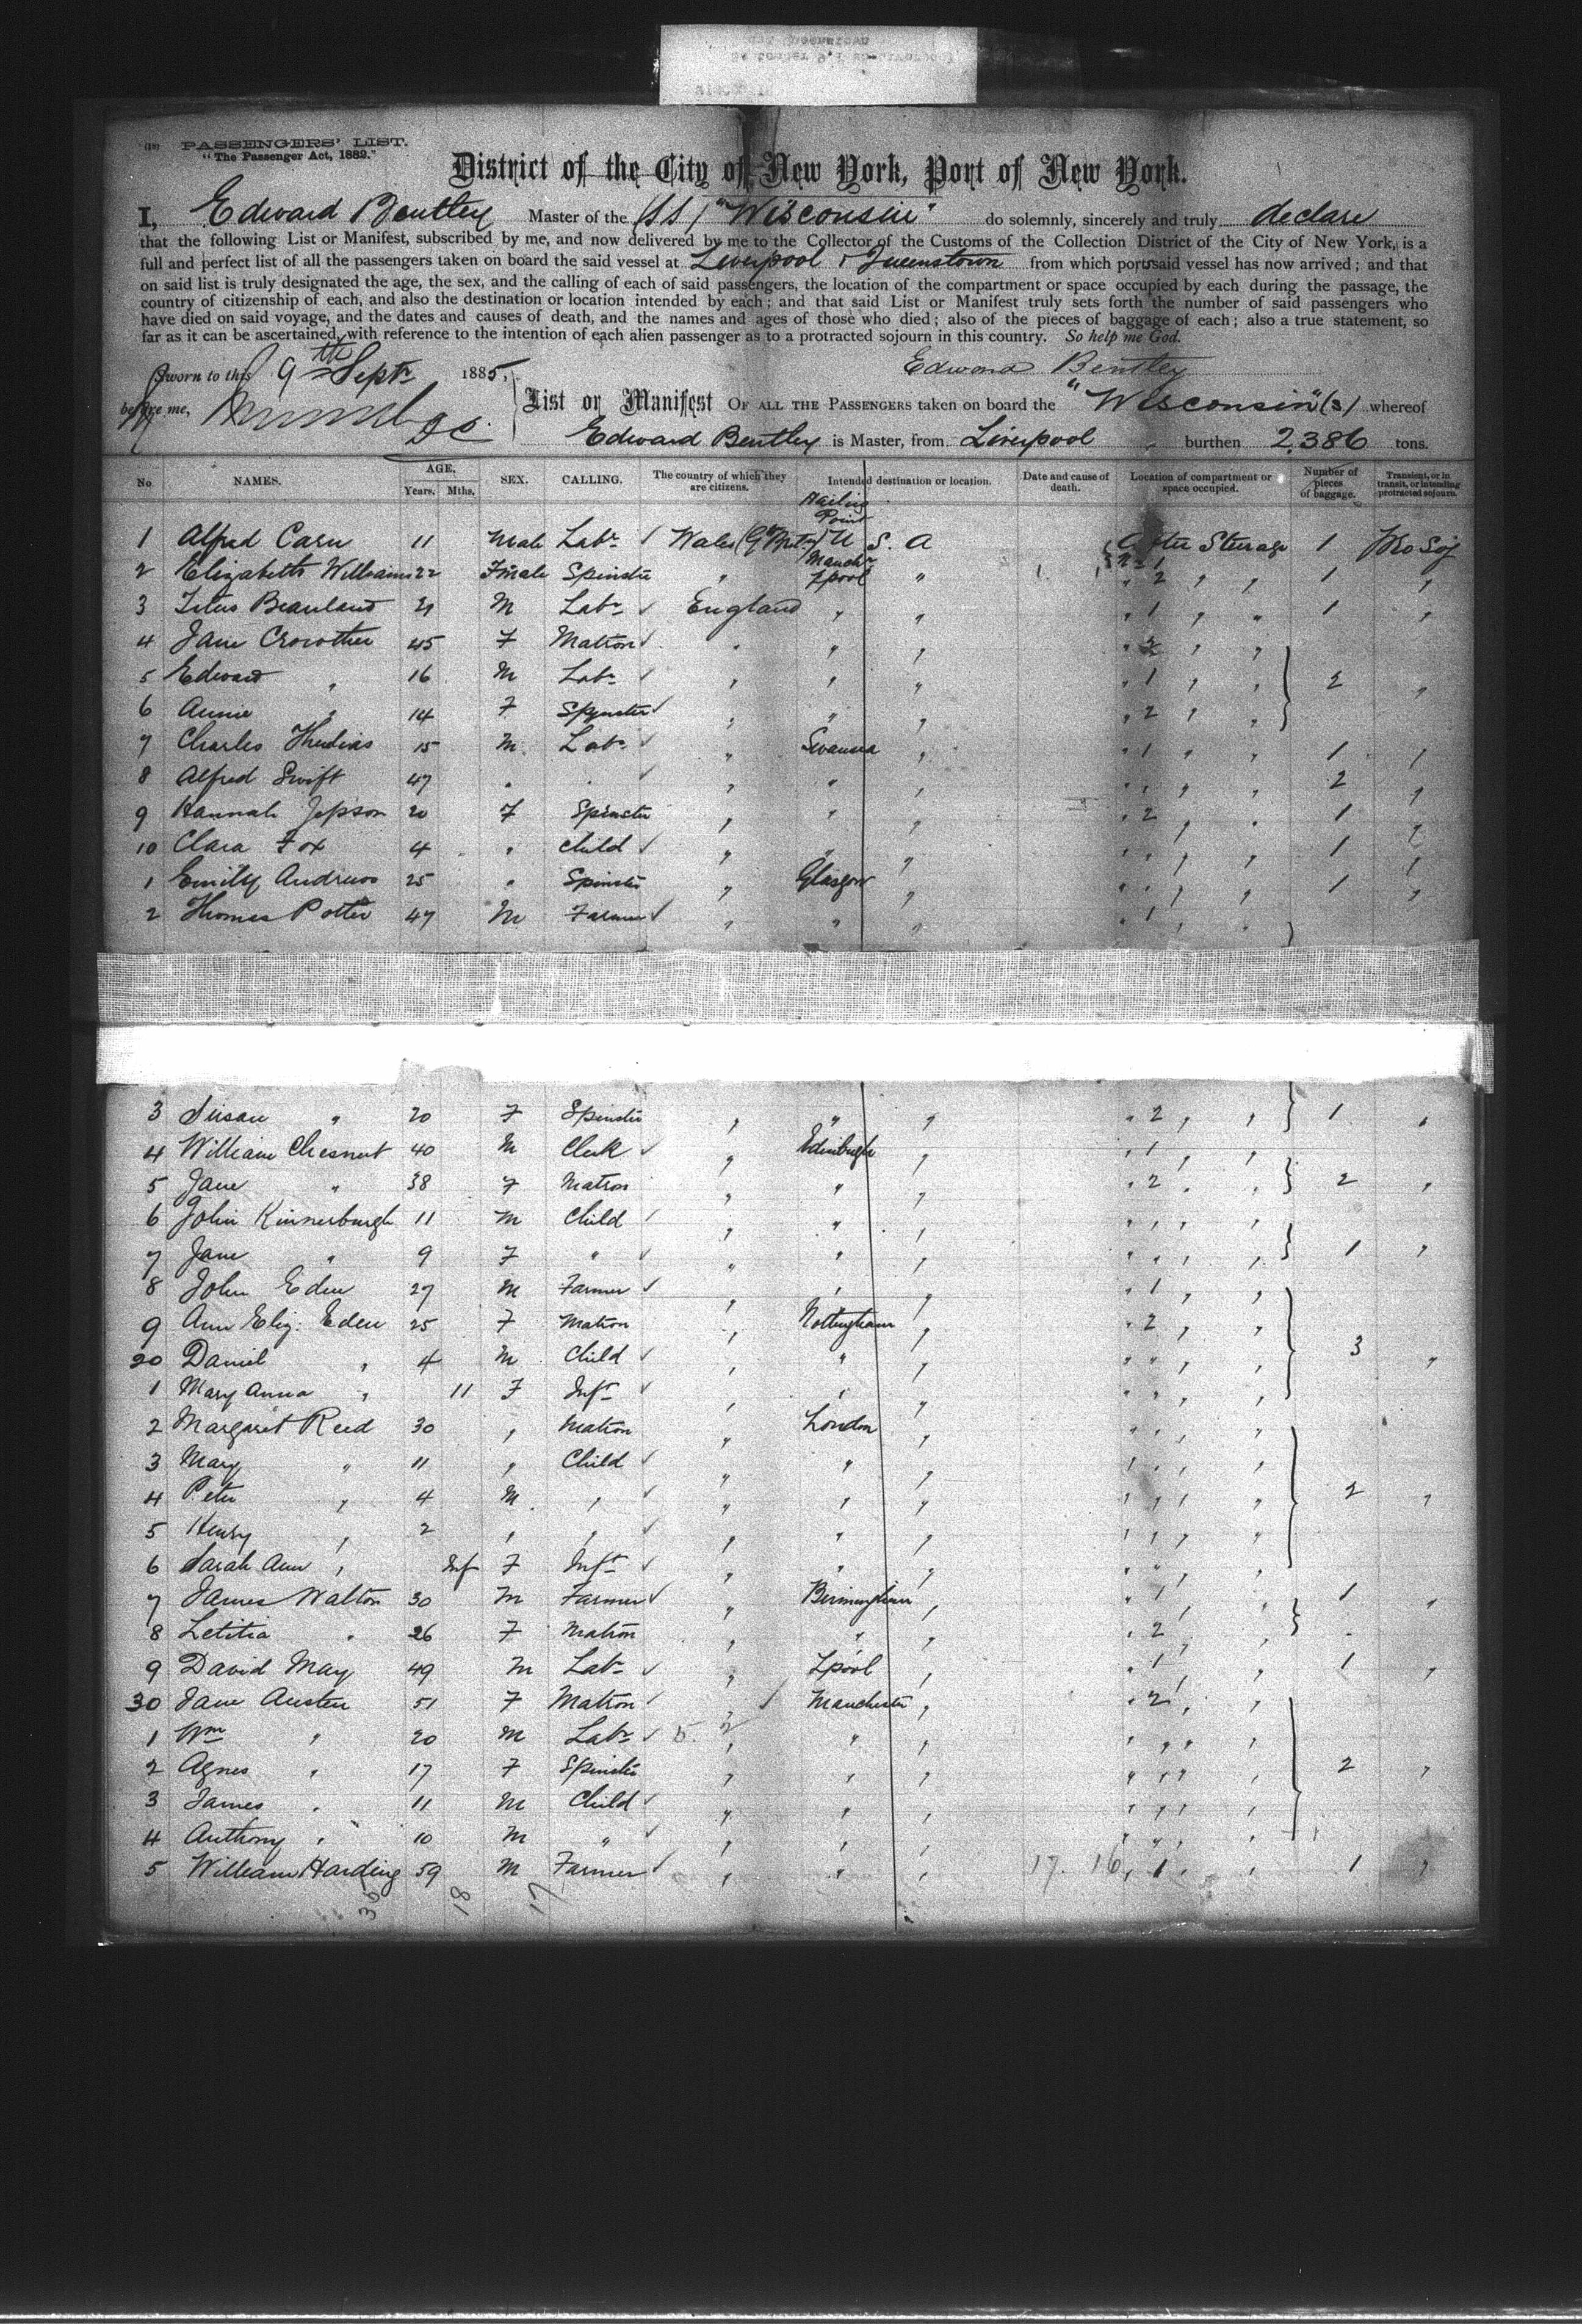 (18) PASSENGERS' LIST.
"The Passenger Act, 1882."
District of the City of New York, Port of New York.
I, Edward Bentley Master of the (SS) "Wisconsin" do solemnly, sincerely and truly declare
that the following List or Manifest, subscribed by me, and now delivered by me to the Collector of the Customs of the Collection District of the City of New York, is a
full and perfect list of all the passengers taken on board the said vessel at Liverpool & Queenstown from which port said vessel has now arrived; and that
on said list is truly designated the age, the sex, and the calling of each of said passengers, the location of the compartment or space occupied by each during the passage, the
country of citizenship of each, and also the destination or location intended by each; and that said List or Manifest truly sets forth the number of said passengers who
have died on said voyage, and the dates and causes of death, and the names and ages of those who died; also of the pieces of baggage of each; also a true statement, so
far as it can be ascertained, with reference to the intention of each alien passenger as to a protracted sojourn in this country. So help me God.
Sworn to this 9th Sept 1885, Edward Bentley
before me, List or Manifest OF ALL THE PASSENGERS taken on board the "Wisconsin" (s) whereof
Edward Bentley is Master, from Liverpool burthen 2,386 tons.
No. NAMES. AGE. Years. Mths. SEX. CALLING. The country of which they are citizens. Intended destination or location. Date and cause of death. Location of compartment or space occupied. Number of pieces of baggage. Transient, or in transit, or intending protracted sojourn.
Mailing Point
1 Alfred 11 Male Labr Wales (Gt Britn) U. S. A After Steerage 1 Pro Soj
2 Elizabeth Williams 22 Female Spinster " Manchr Lpool " " 2 " " 1 "
3 Titus Beanland 21 M Labr England " " " 1 " " 1 "
4 Jane Crowther 45 F Matron " " " " 2 " "
5 Edward " 16 M Labr " " " " 1 " " 2 "
6 Annie " 14 F Spinster " " " " 2 " "
7 Charles 15 M Labr " Swansea " " 1 " " 1 "
8 Alfred Swift 47 " " " " " " " " " 2 "
9 Hannah Jepson 20 F Spinster " " " " 2 " " 1 "
10 Clara Fox 4 " Child " " " " " " " 1 "
1 Emily Andrews 25 " Spinster " Glasgow " " " " " 1 "
2 Thomas Potter 47 M Farmer " " " " 1 " "
3 Susan " 20 F Spinster " " " " 2 " " 1 "
4 William Chesnut 40 M Clerk " Edinburgh " " 1 " "
5 Jane " 38 F Matron " " " " 2 " " 2 "
6 John Kinnerburgh 11 M Child " " " " " " "
7 Jane " 9 F " " " " " " " " 1 "
8 John Eden 27 M Farmer " " " " 1 " "
9 Ann Eliz. Eden 25 F Matron " Nottingham " " 2 " "
20 Daniel " 4 M Child " " " " " " " 3 "
1 Mary Anna " 11 F Inft " " " " " " "
2 Margaret Reed 30 " Matron " London " " " " "
3 Mary " 11 " Child " " " " " " "
4 Peter " 4 M " " " " " " " " 2 "
5 Henry " 2 " " " " " " " " "
6 Sarah Ann " Inf F Inft " " " " " "
7 James Walton 30 M Farmer " Birmingham " " 1 " " 1 "
8 Letitia " 26 F Matron " " " " 2 " "
9 David May 49 M Labr " Lpool " " 1 " " 1 "
30 Jane Austen 51 F Matron " Manchester " " 2 " "
1 Wm " 20 M Labr " " " " " " "
2 Agnes " 17 F Spinster " " " " " " " 2 "
3 James " 11 M Child " " " " " " "
4 Anthony " 10 M " " " " " " " "
5 William Harding 59 M Farmer " " " 17. 16 " 1 " " 1 "
36 18 17